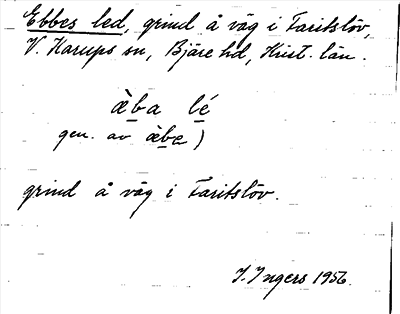 Ebbes led, grind å väg i Faritslöv,
V. Karups sn, Bjäre hd, Krist. län.
æ̀ba lé
gen. av æ̀bə)
grind å väg i Faritslöv.
I. Ingers 1956.